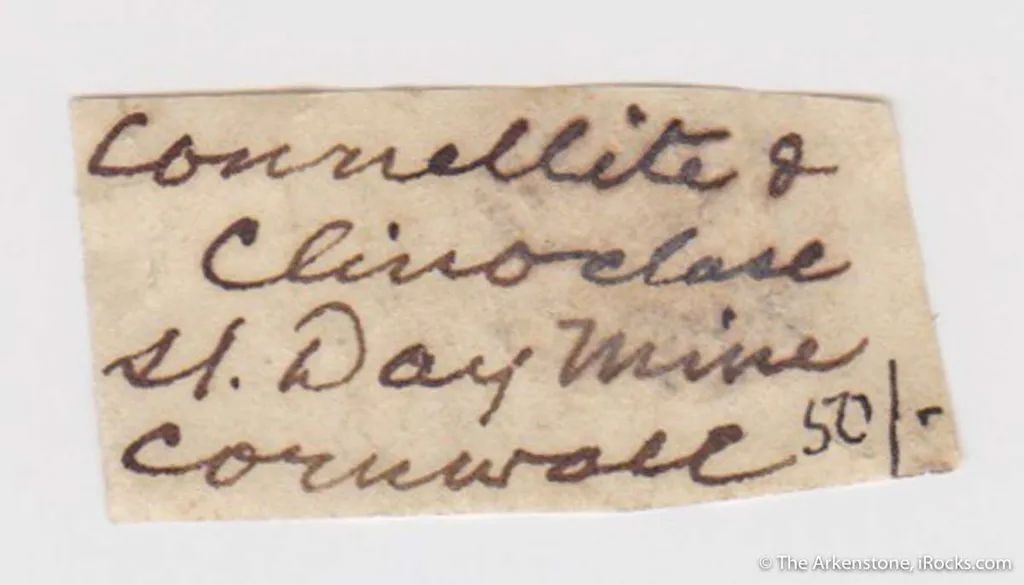 Connellite &
Clinoclase
St. Day Mine
Cornwall 50/-
© The Arkenstone, iRocks.com